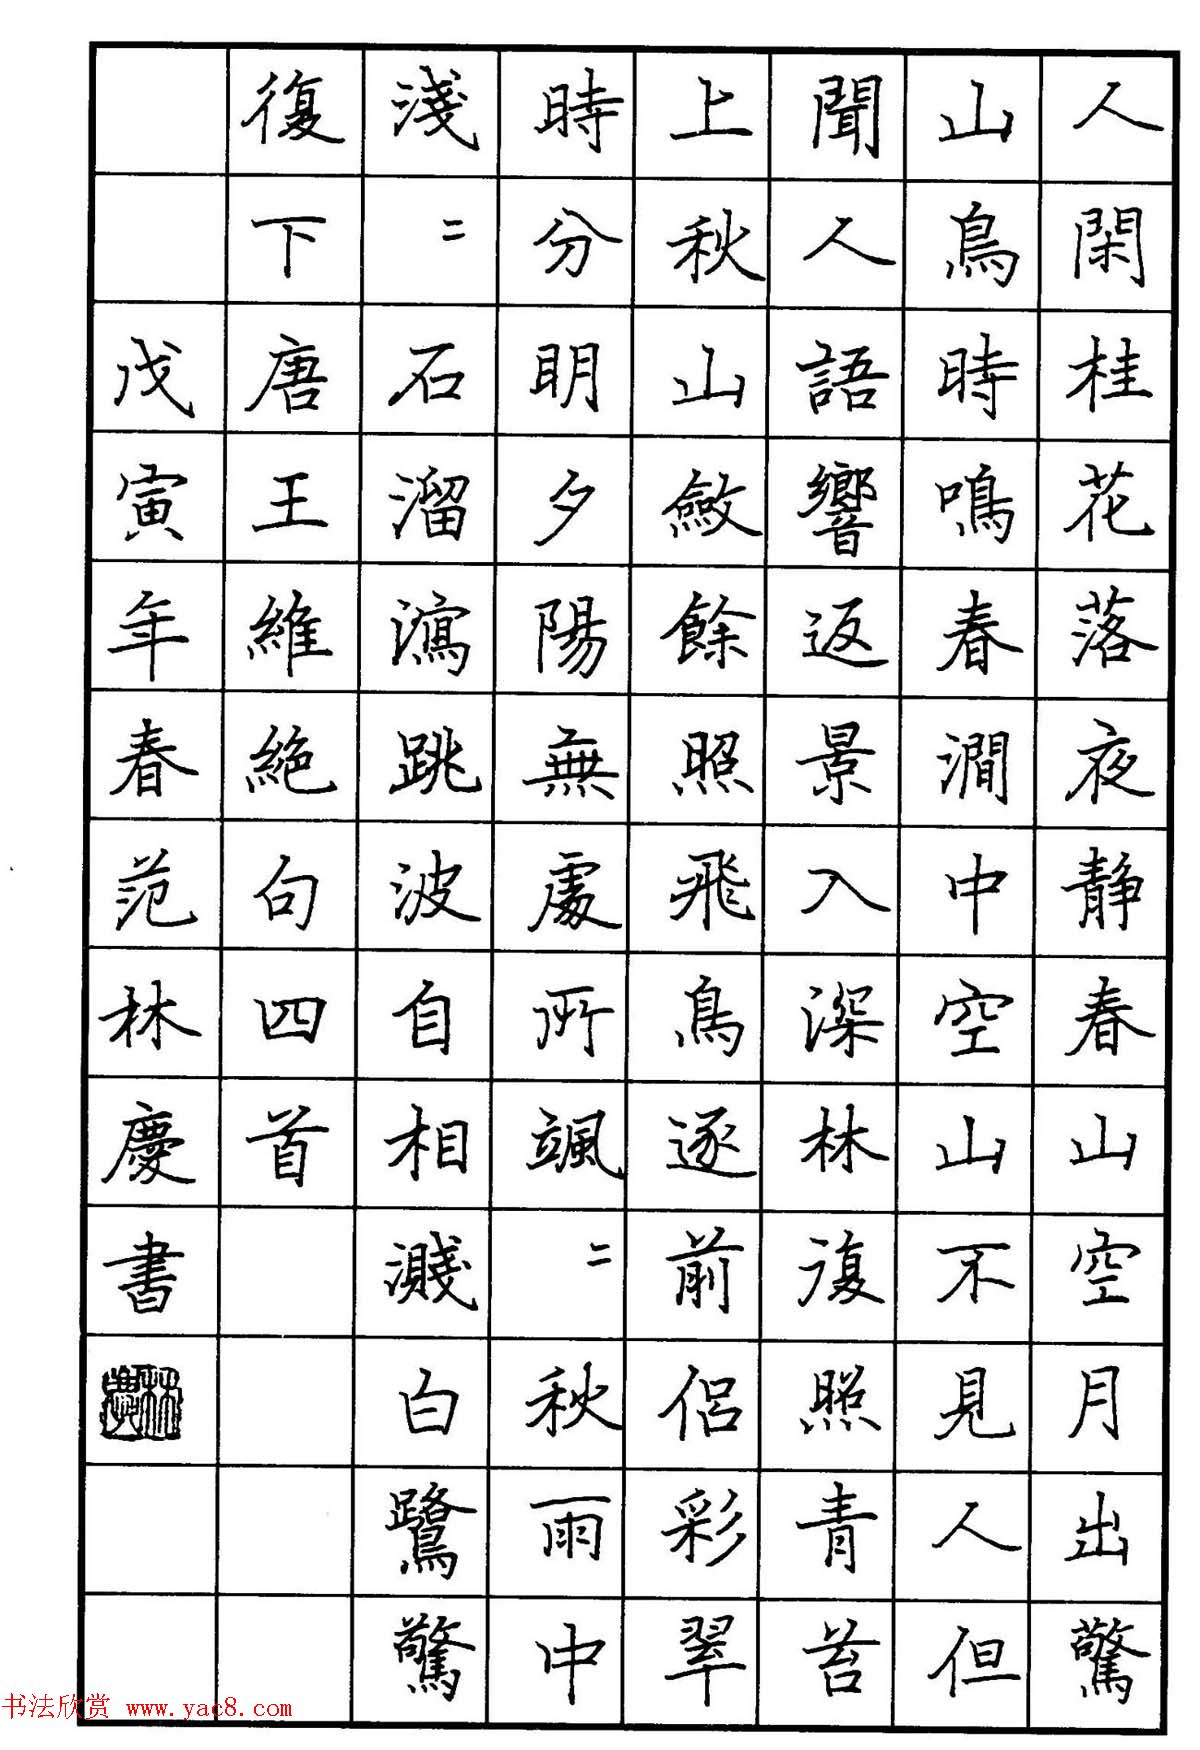 人閑桂花落夜静春山空月出驚
山鳥時鳴春澗中空山不見人但
聞人語響返景入深林復照青苔
上秋山斂餘照飛鳥逐前侶彩翠
時分明夕陽無處所颯〻秋雨中
淺〻石溜瀉跳波自相濺白鷺驚
復下唐王維絶句四首
戊寅年春范林慶書
林慶
书法欣赏 www.yac8.com